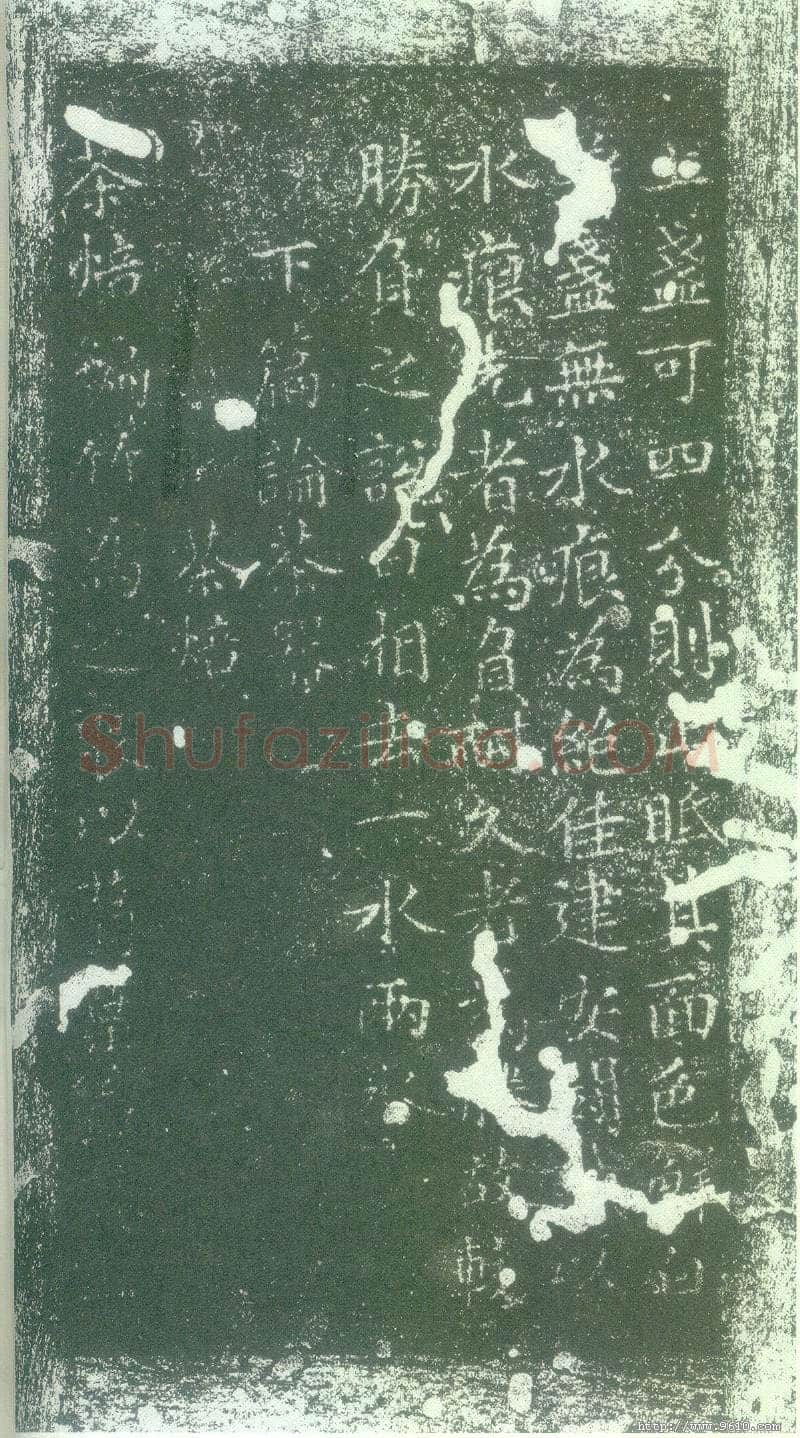 上盞可四分則眡其面色鮮白
盞無水痕為絕佳建安鬬以
水痕先者為負耐久者為故較
勝負之說曰相去一水兩
下篇論茶器
茶焙
茶焙編竹為以
Shufaziliao.COM
http://www.9610.com